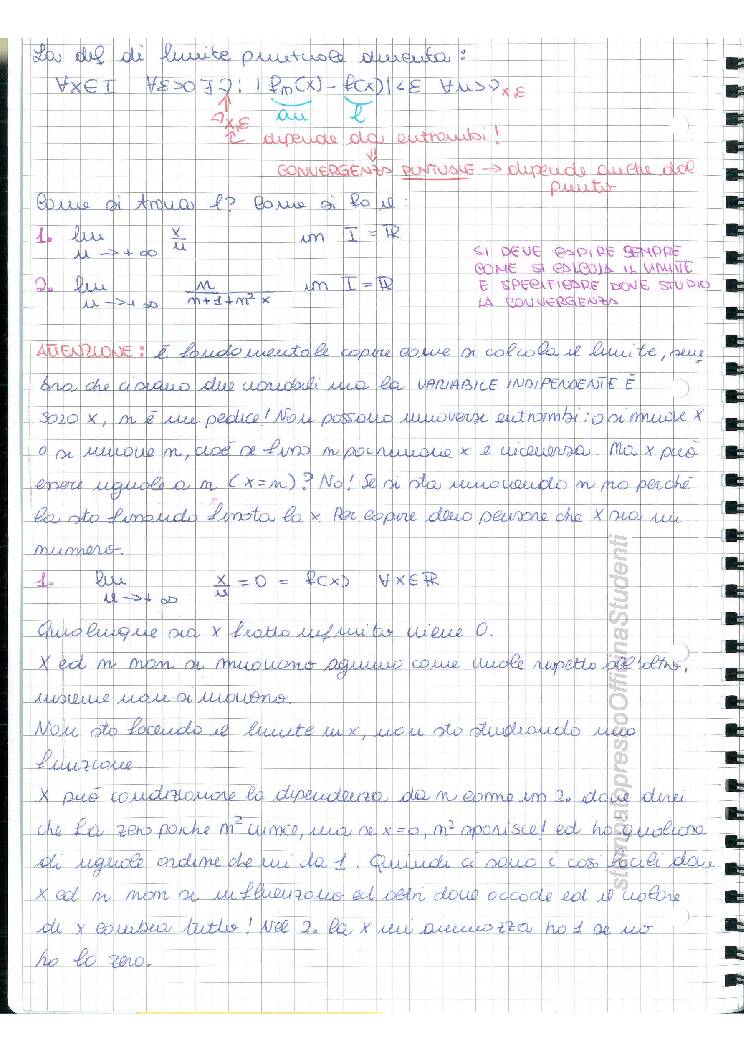 La def di limite puntuale diventa:
∀x∈I ∀ε>0 ∃ν: |fn(x) - f(x)|<ε ∀n>νx,ε
an l
νx,ε
dipende da entrambi!
CONVERGENZA PUNTUALE → dipende anche dal
punto
Come si trova l? Come si fa il:
1. lim n→+∞ x/n in I = ℝ
SI DEVE CAPIRE SEMPRE
COME SI CALCOLA IL LIMITE
E SPECIFICARE DOVE STUDIO
LA CONVERGENZA
2. lim n→+∞ n/(n+1+n²x) in I = ℝ
ATTENZIONE: è fondamentale capire come si calcola il limite, sem
bra che ci siano due variabili ma la VARIABILE INDIPENDENTE È
SOLO X, n è un pedice! Non possono muoversi entrambi: o si muove x
o si muove n, cioè se fisso n poi muove x e viceversa. Ma x può
essere uguale a n (x=n)? No! Se si sta muovendo n no perché
la sto fissando fissata la x. Per capire devo pensare che x sia un
numero.
1. lim n→+∞ x/n = 0 = f(x) ∀x∈ℝ
Qualunque sia x fratto infinito viene 0.
X ed n non si muovono ognuno come vuole rispetto all'altro,
insieme non si muovono.
Non sto facendo il limite in x, non sto studiando una
funzione
X può condizionare la dipendenza da n come in 2. dove direi
che fa zero perché n² vince, ma se x=0, n² sparisce! ed ho qualcosa
di uguale ordine che mi fa 1. Quindi ci sono i casi facili dove
x ed n non si influenzano ed altri dove accade ed il valore
di x cambia tutto! Nel 2. la x mi ammazza ho 1 se no
ho lo zero.
stampatopressoOfficinaStudenti